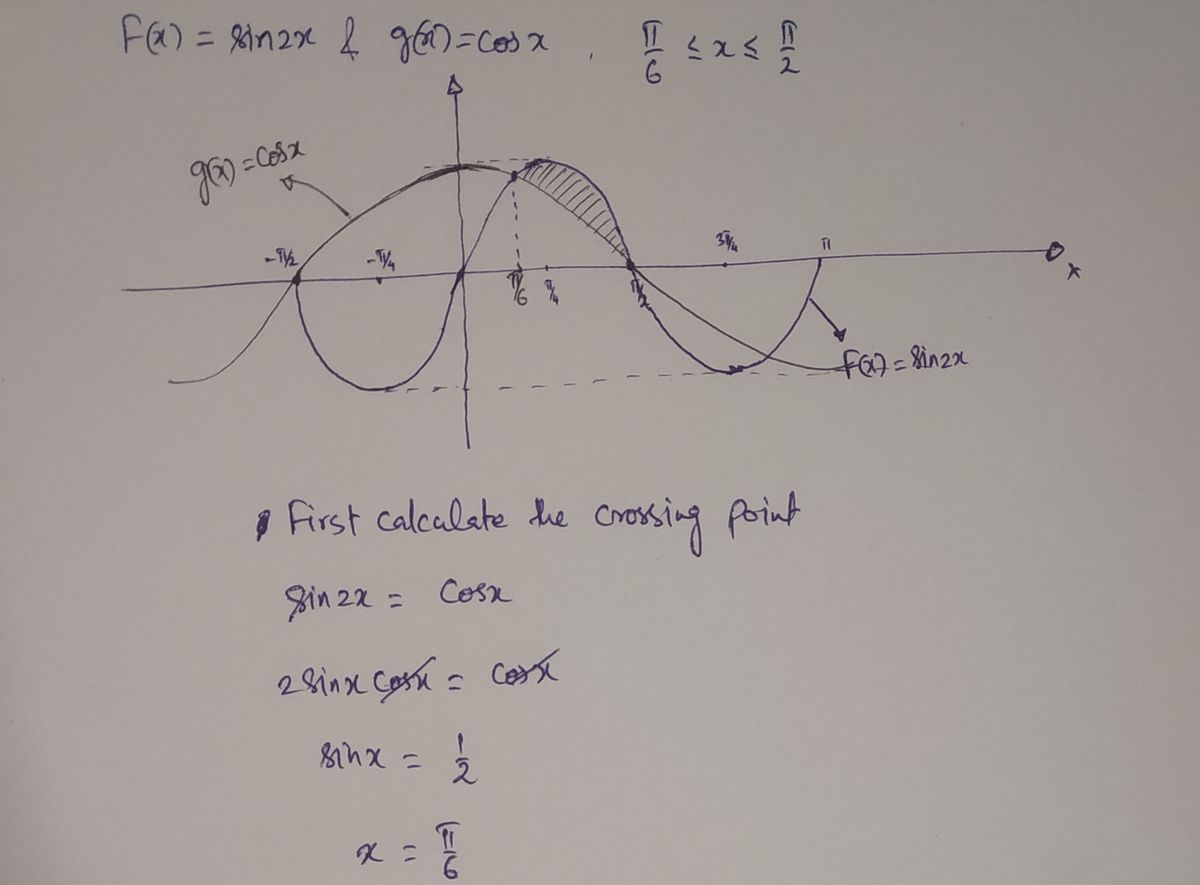 F(x) = sin2x & g(x)=cosx , π/6 ≤ x ≤ π/2
g(x)=cosx
-π/2 -π/4 π/6 π/4 π/2 3π/4 π
x
F(x) = sin2x
First calculate the crossing point
sin2x = cosx
2sinx cosx = cosx
sinx = 1/2
x = π/6